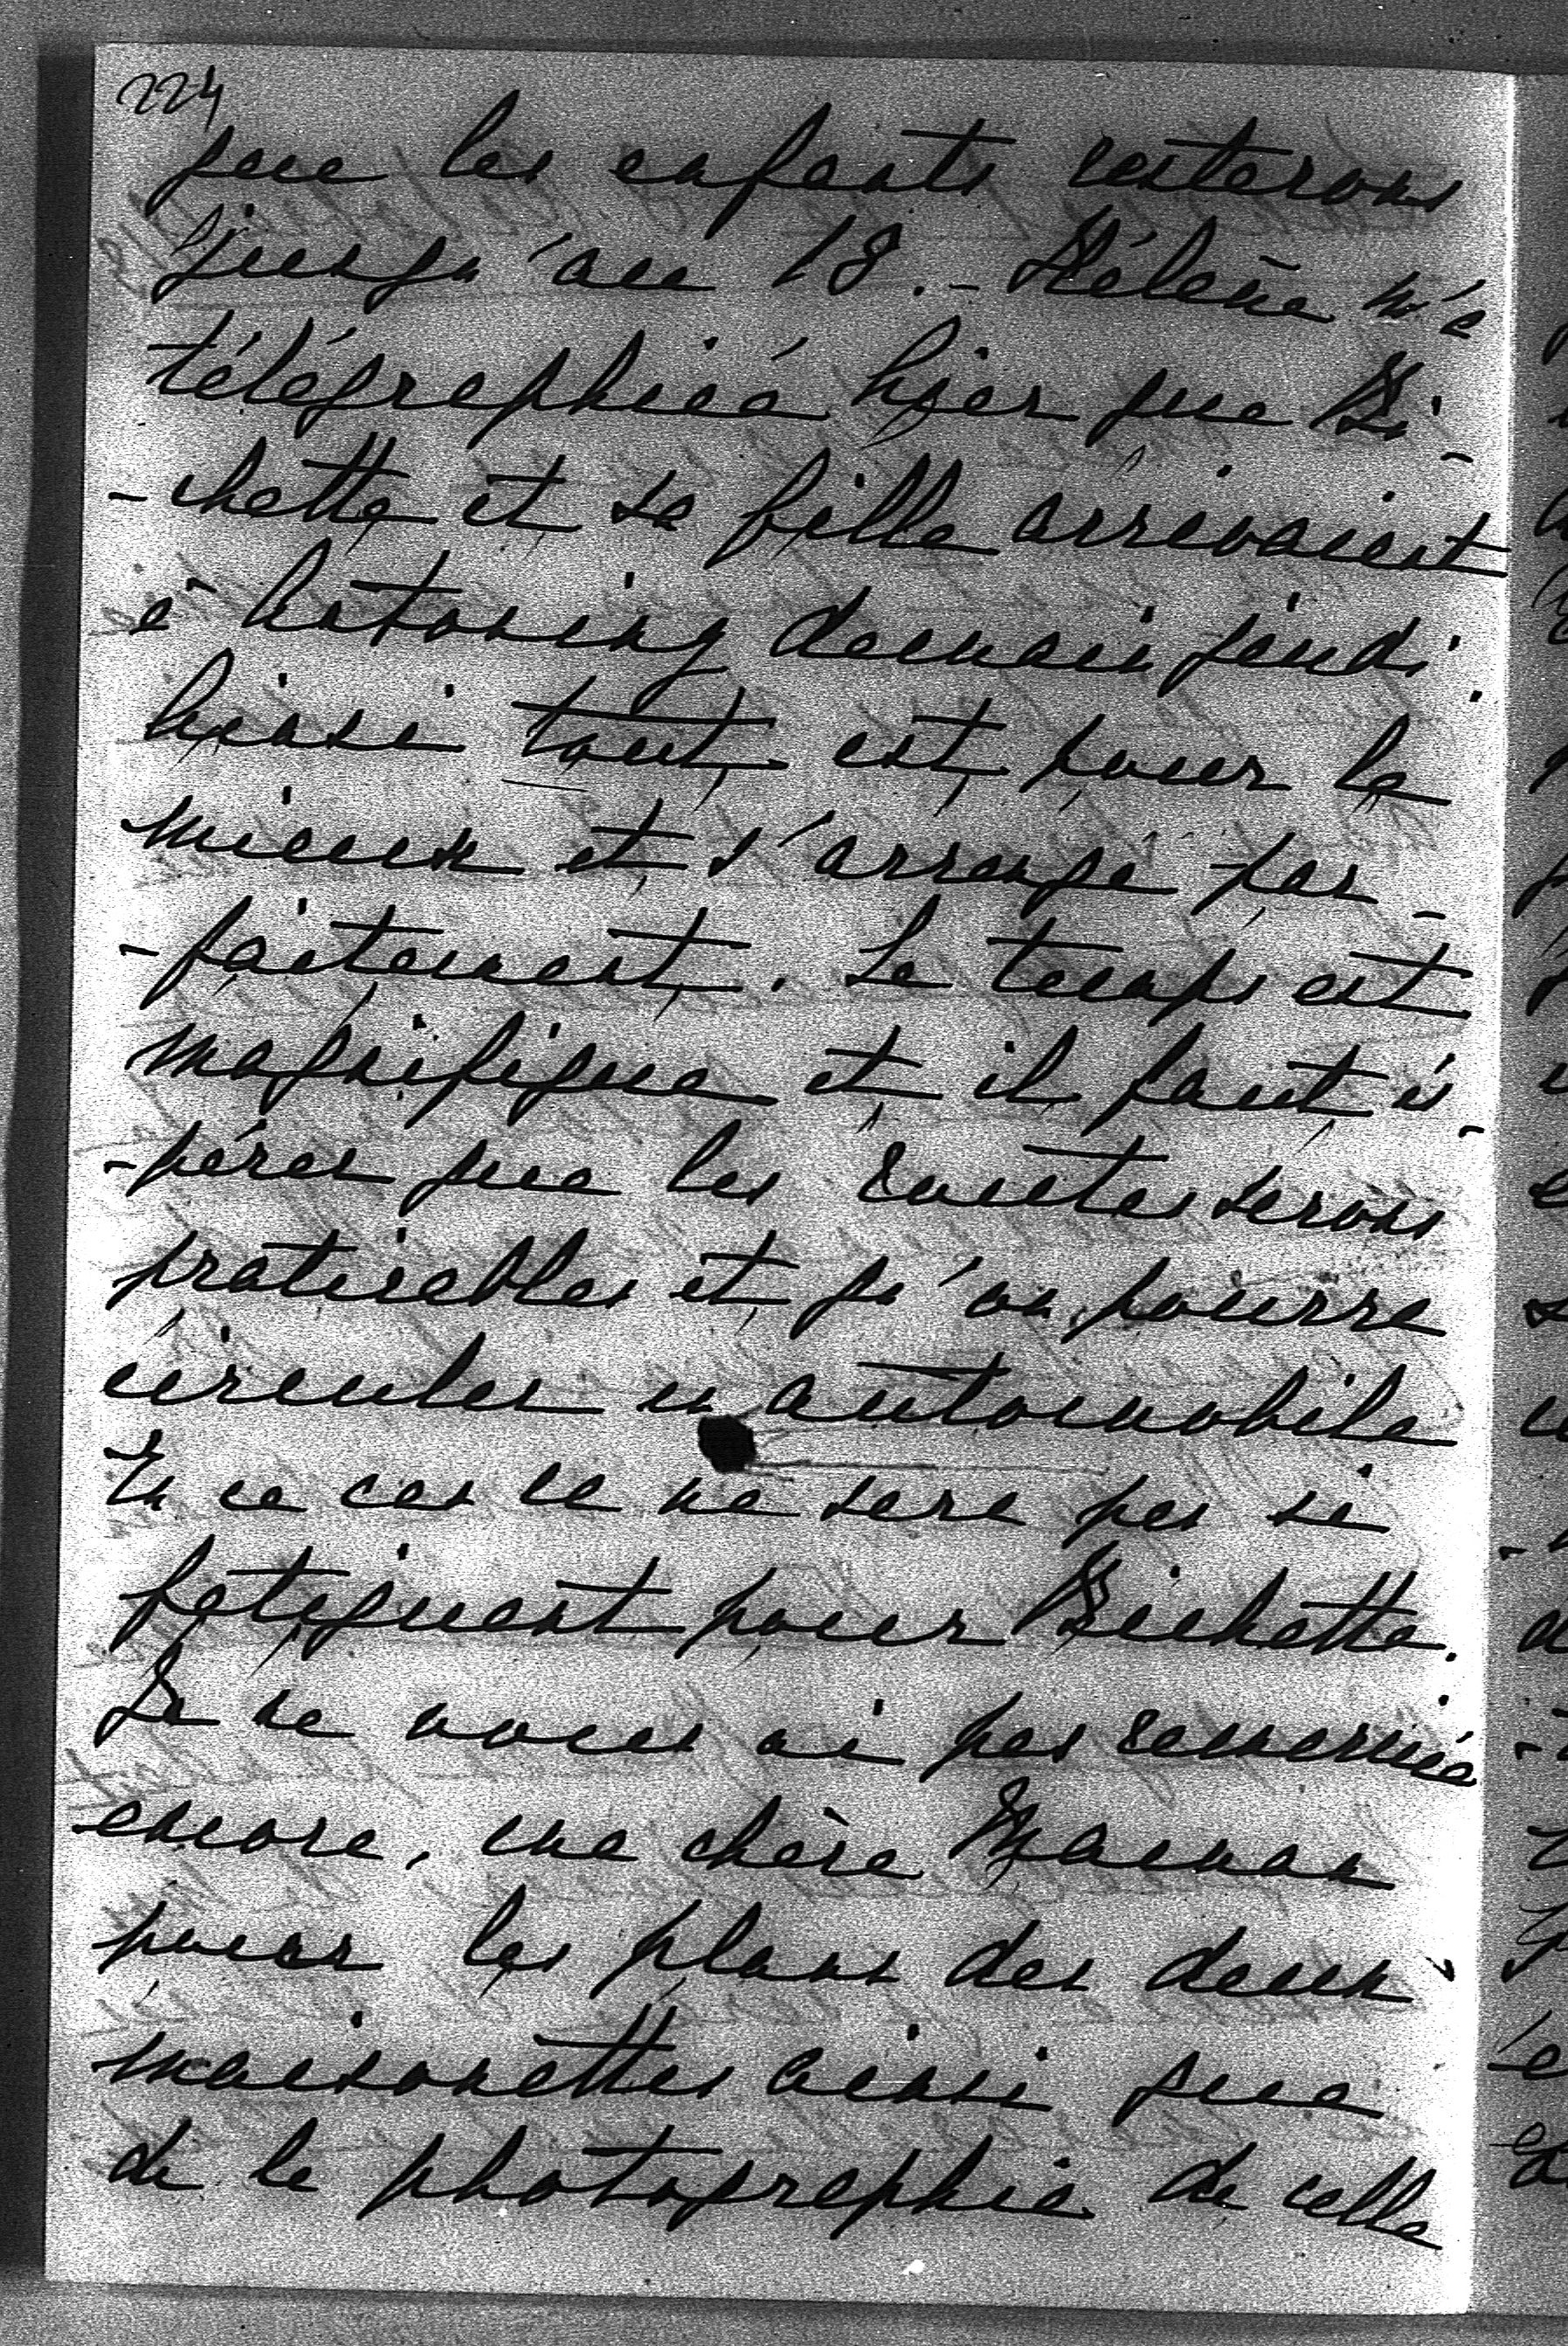 224
que les enfants resterons
jusqu'au 18. - Hélène m'a
télégraphié hier que Bi-
-chette et sa fille arrivaient
à Antoniny demain jeudi.
Ainsi tout est pour le
mieux et s'arrange par-
-faitement. Le temps est
magnifique et il faut es-
-pérer que les routes serons
praticables et qu'on pourra
circuler en automobile
En ce cas ce ne sera pas si
fatiguant pour Bichette.
Je ne vous ai pas remercié
encore, ma chère Maman
pour les plans des deux
maisonettes ainsi que
de la photographie de celle